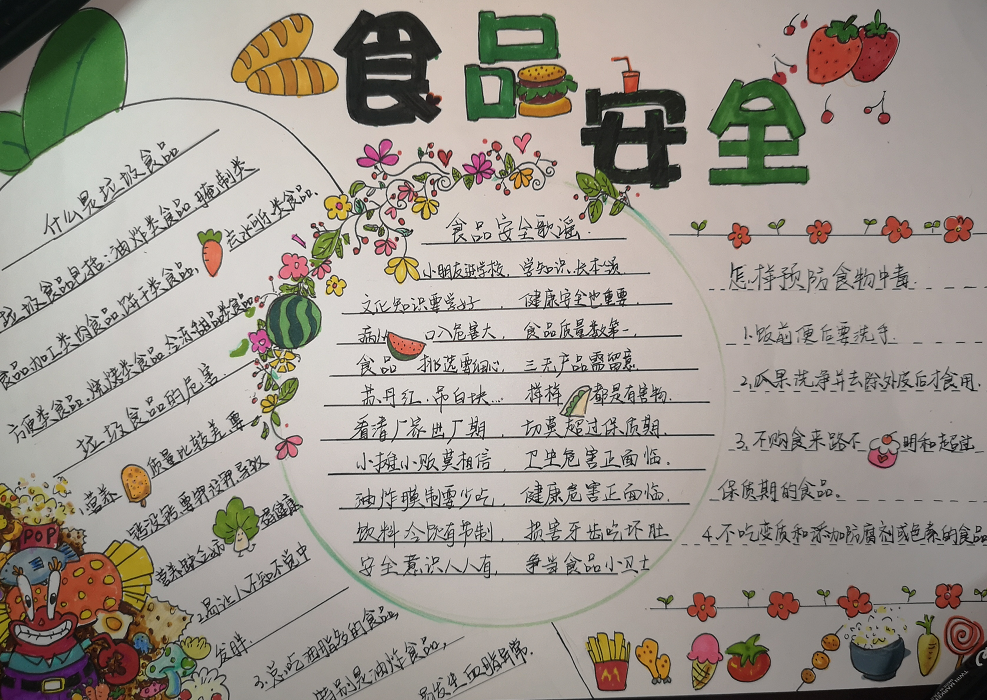 食品
安全
什么是垃圾食品
垃圾食品包括:油炸类食品,腌制类
食品,加工类肉食品,饼干类食品,
方便类食品,烧烤类食品,冷冻甜品类食品
垃圾食品的危害.
质量比较差,要
营养
2.易让人不知不觉中
发胖.
3.总吃油脂多的食品,
特别是油炸食品,
易发生血脂异常.
食品安全歌谣
小朋友进学校,学知识,长本领
文化知识要学好,健康安全也重要.
病从口入危害大,食品质量数第一,
食品挑选要细心,三无产品需留意
苏丹红.吊白块... 样样都是有害物.
看清厂家出厂期,切莫超过保质期.
小摊小贩莫相信,卫生危害正面临.
油炸腌制要少吃,健康危害正面临.
饮料冷饮有节制,损害牙齿吃坏肚
安全意识人人有,争当食品小卫士
怎样预防食物中毒.
1.饭前便后要洗手.
2.瓜果洗净并去除外皮后才食用.
3.不购食来路不明和超过
保质期的食品。
4.不吃变质和添加防腐剂或色素的食品
POP